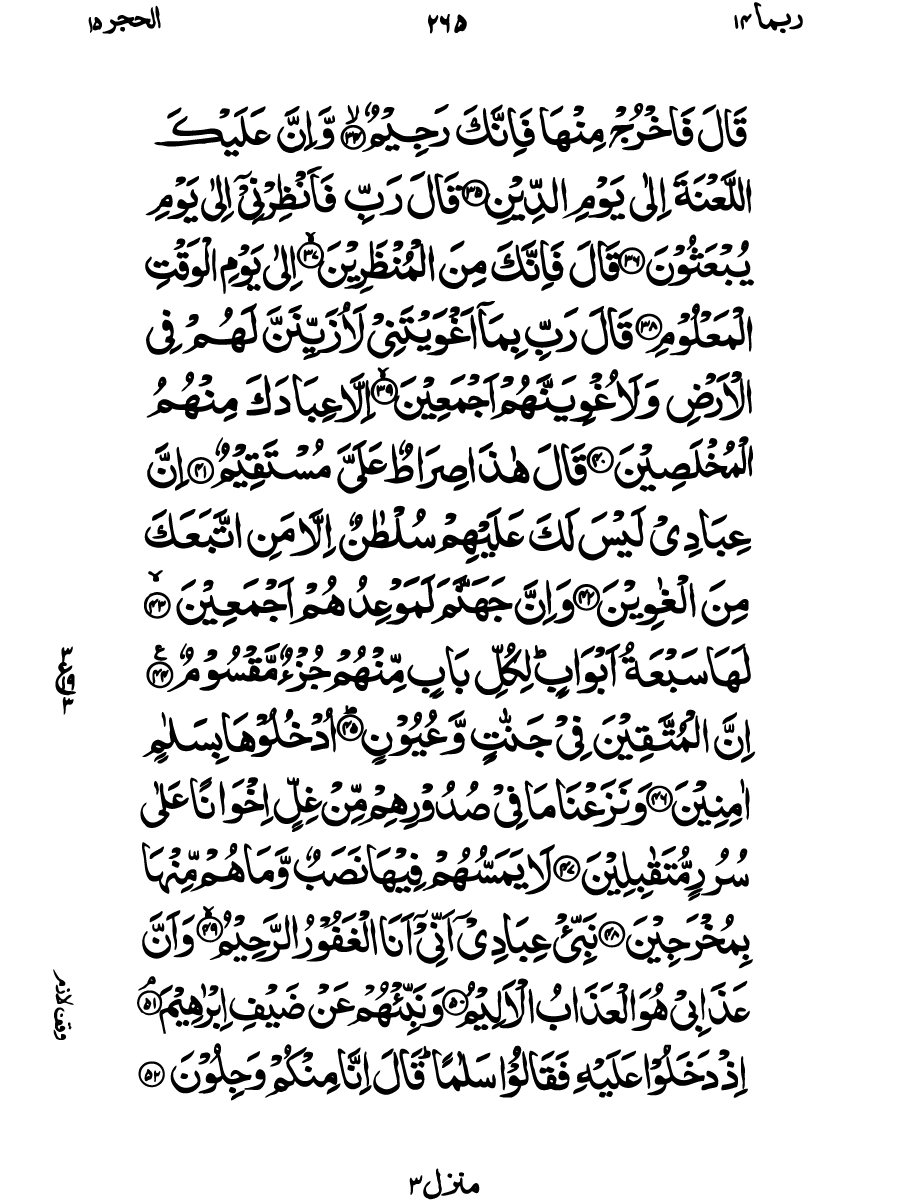 ربما ۱۴
۲۶۵
الحجر ۱۵
قَالَ فَاخْرُجْ مِنْهَا فَاِنَّكَ رَجِيْمٌ ۙ﴿۳۴﴾ وَّاِنَّ عَلَيْكَ
اللَّعْنَةَ اِلٰى يَوْمِ الدِّيْنِ ﴿۳۵﴾ قَالَ رَبِّ فَاَنْظِرْنِيْۤ اِلٰى يَوْمِ
يُبْعَثُوْنَ ﴿۳۶﴾ قَالَ فَاِنَّكَ مِنَ الْمُنْظَرِيْنَ ۙ﴿۳۷﴾ اِلٰى يَوْمِ الْوَقْتِ
الْمَعْلُوْمِ ﴿۳۸﴾ قَالَ رَبِّ بِمَاۤ اَغْوَيْتَنِيْ لَاُزَيِّنَنَّ لَهُمْ فِى
الْاَرْضِ وَلَاُغْوِيَنَّهُمْ اَجْمَعِيْنَ ۙ﴿۳۹﴾ اِلَّا عِبَادَكَ مِنْهُمُ
الْمُخْلَصِيْنَ ﴿۴۰﴾ قَالَ هٰذَا صِرَاطٌ عَلَىَّ مُسْتَقِيْمٌ ﴿۴۱﴾ اِنَّ
عِبَادِيْ لَيْسَ لَكَ عَلَيْهِمْ سُلْطٰنٌ اِلَّا مَنِ اتَّبَعَكَ
مِنَ الْغٰوِيْنَ ﴿۴۲﴾ وَاِنَّ جَهَنَّمَ لَمَوْعِدُهُمْ اَجْمَعِيْنَ ۙ﴿۴۳﴾
لَهَا سَبْعَةُ اَبْوَابٍ ؕ لِكُلِّ بَابٍ مِّنْهُمْ جُزْءٌ مَّقْسُوْمٌ ﴿۴۴﴾ ع
۳
۱۹
۳
اِنَّ الْمُتَّقِيْنَ فِيْ جَنّٰتٍ وَّعُيُوْنٍ ؕ﴿۴۵﴾ اُدْخُلُوْهَا بِسَلٰمٍ
اٰمِنِيْنَ ﴿۴۶﴾ وَنَزَعْنَا مَا فِيْ صُدُوْرِهِمْ مِّنْ غِلٍّ اِخْوَانًا عَلٰى
سُرُرٍ مُّتَقٰبِلِيْنَ ﴿۴۷﴾ لَا يَمَسُّهُمْ فِيْهَا نَصَبٌ وَّمَا هُمْ مِّنْهَا
بِمُخْرَجِيْنَ ﴿۴۸﴾ نَبِّئْ عِبَادِيْۤ اَنِّيْۤ اَنَا الْغَفُوْرُ الرَّحِيْمُ ۙ﴿۴۹﴾ وَاَنَّ
عَذَابِيْ هُوَ الْعَذَابُ الْاَلِيْمُ ﴿۵۰﴾ وَنَبِّئْهُمْ عَنْ ضَيْفِ اِبْرٰهِيْمَ ۘ﴿۵۱﴾
وقف لازم
اِذْ دَخَلُوْا عَلَيْهِ فَقَالُوْا سَلٰمًا ؕ قَالَ اِنَّا مِنْكُمْ وَجِلُوْنَ ﴿۵۲﴾
منزل ۳